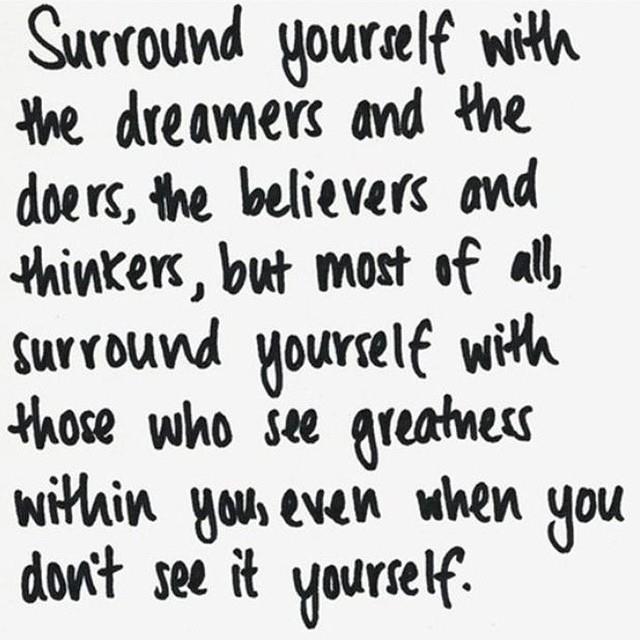 Surround yourself with
the dreamers and the
doers, the believers and
thinkers, but most of all,
surround yourself with
those who see greatness
within you, even when you
don't see it yourself.